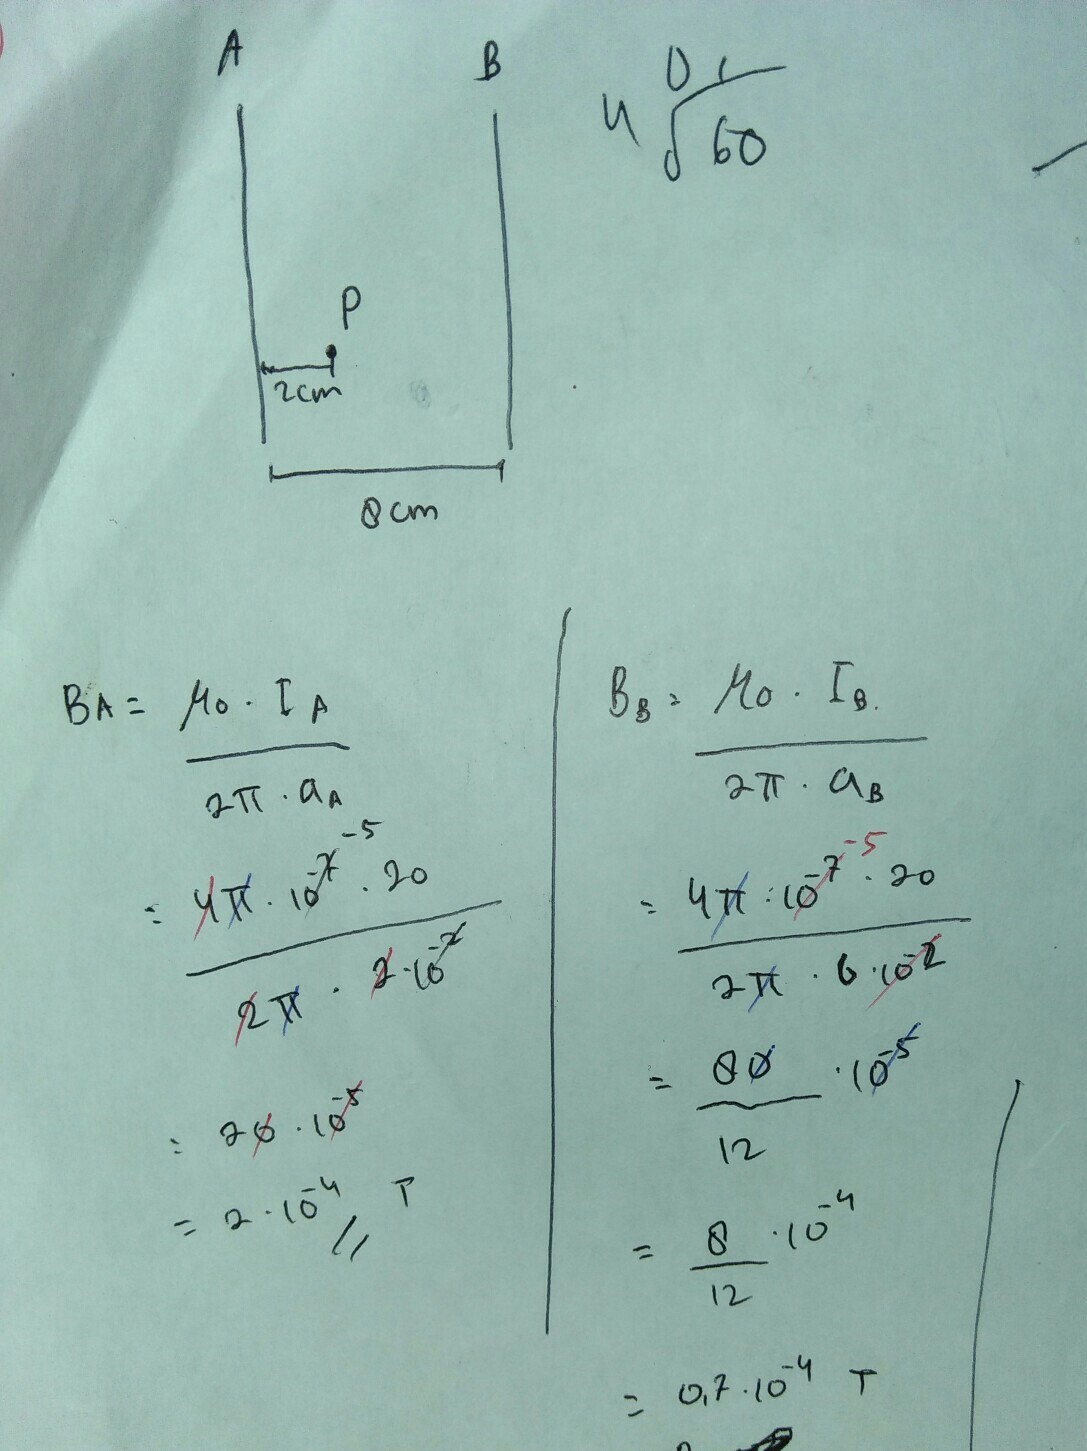 A B
0 1
4 √60
P
2cm
8cm
BA = μ0 · IA
2π · aA
= 4π · 10^-7 ^-5 · 20
2π · 2 · 10^-2
= 20 · 10^-5
= 2 · 10^-4 // T
BB = μ0 · IB.
2π · aB
= 4π · 10^-7 ^-5 · 20
2π · 6 · 10^-2
= 80 · 10^-5
12
= 8 · 10^-4
12
= 0,7 · 10^-4 T